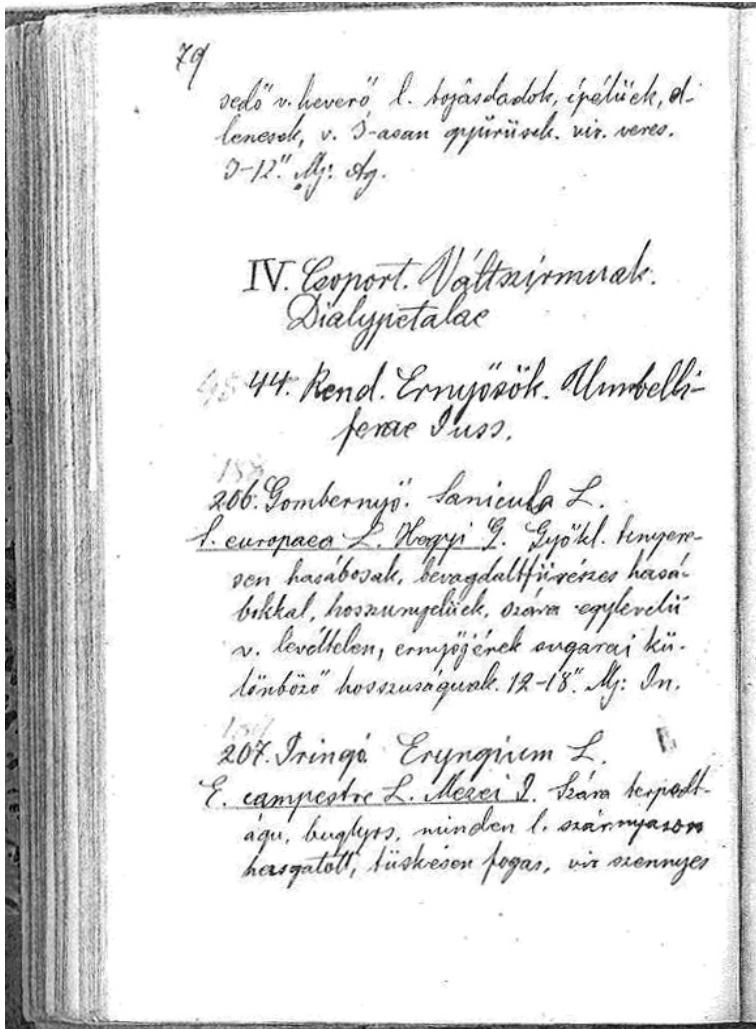 79
sedő v. heverő, l. tojásdadok, épélüek, el-
lenesek, v. 3-asan gyűrüsek. vir. veres.
3-12." Mj: Ag.
IV. Csoport. Váltszirmuak.
Dialypetalae
45 44. Rend. Ernyősök. Umbelli-
ferae Juss.
188
206. Gombernyő. Sanicula L.
S. europaea L. Hegyi G. Gyökl. tenyere-
sen hasábosak, bevagdaltfürészes hasá-
bokkal, hosszunyelüek, szára egylevelü
v. levéltelen, ernyőjének sugarai kü-
lönböző hosszuságuak. 12-18." Mj: In.
189
207. Iringó Eryngium L.
E. campestre L. Mezei I. Szára terpedt-
águ, buglyos, minden l. szárnyason
hasgatott, tüskésen fogas, vir szennyes